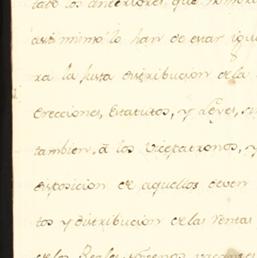 los anteriores, que
asi mimo lo han de estar igu
ra la justa distribucion de la
erecciones, Estatutos, y Leyes,
tambien, á los Vicepatronos, y
disposicion de aquellos deven
tos y distribucion de las rentas
de los Reales